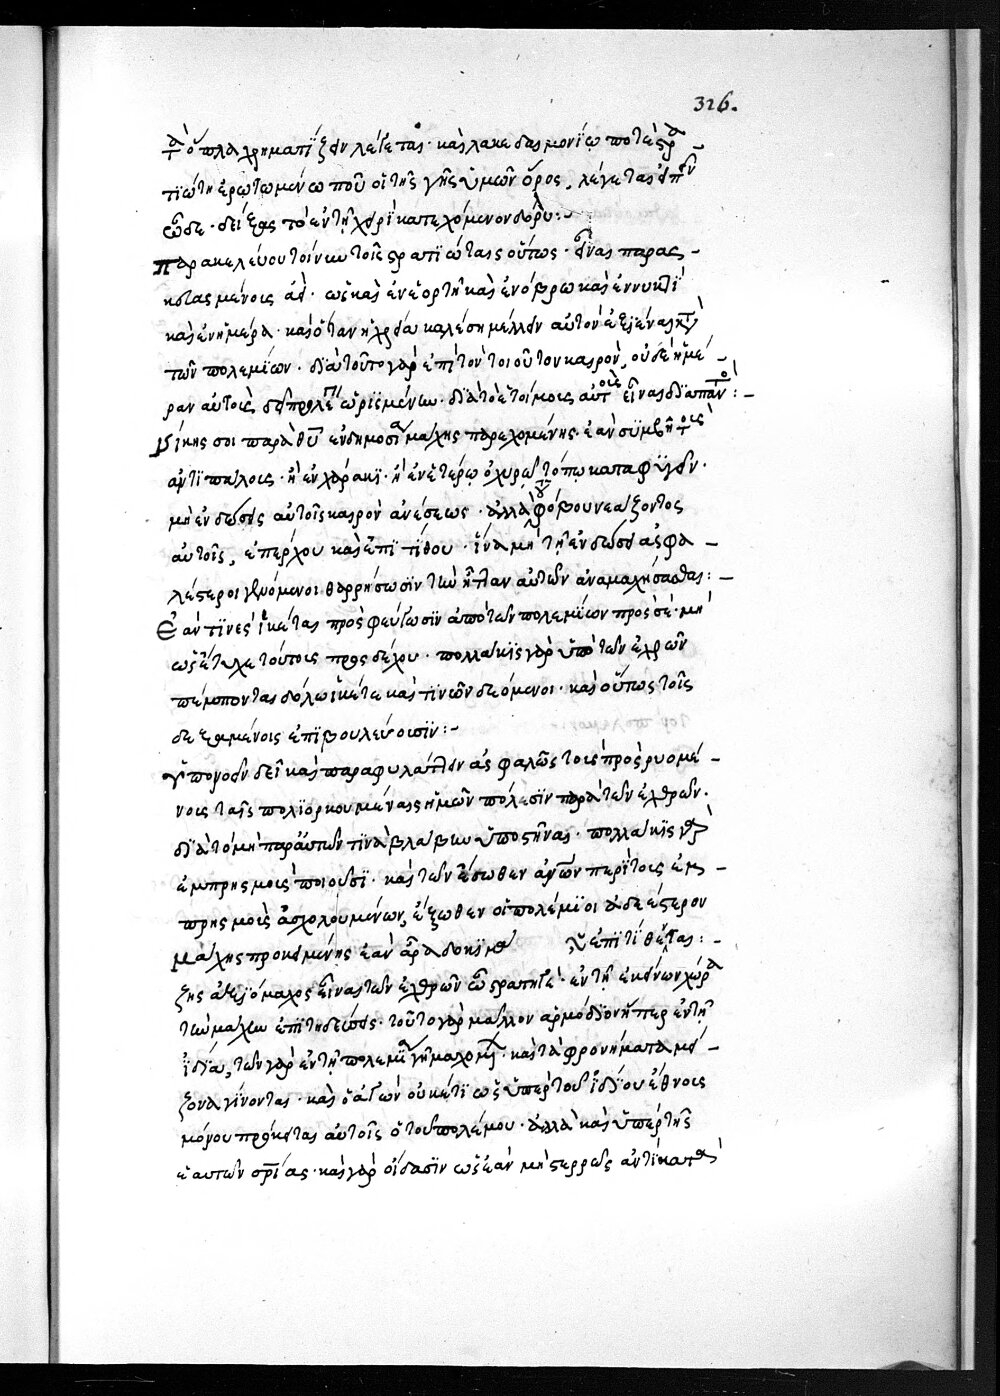 326.
τὰ ὅπλα χρηματίζειν λέγεται· καὶ λακεδαιμονίῳ ποτὲ στρα-
τιώτῃ ἐρωτωμένῳ ποῦ οἱ τῆς γῆς ὑμῶν ὅροι, λέγεται εἰπεῖν
ὧδε· δείξας τὸ ἐν τῇ χειρὶ κατεχόμενον δόρυ:-
παρακελεύου τοίνυν τοῖς στρατιώταις οὕτως· εἶναι παρας-
κευασμένοις ἀεὶ· ὡς καὶ ἐν ἑορτῇ καὶ ἐν ὄβρω καὶ ἐν νυκτὶ
καὶ ἐν ἡμέρα· καὶ ὅταν ἡ χρεία καλέση μέλλειν αὐτὸν ἐξιέναι κατὰ
τῶν πολεμίων. διὰ τοῦτο γὰρ ἐπὶ τὸν τοιοῦτον καιρὸν, οὐδὲ ἡμέ-
ραν αὐτοῖς δεῖ προλέγειν ὡρισμένην· διὰ τὸ ἑτοίμοις αὐτοῖς εἶναι διαπαντός:-
Νίκης σοι παρὰ θεοῦ ἐν δημοσία μάχης παρεχομένης· ἐὰν συμβῆ τοῖς
ἀντιπάλοις· ἢ ἐν χάρακι· ἢ ἐν ἑτέρῳ ὀχυρῷ τόπῳ καταφυγεῖν·
μὴ ἐνδώσεις αὐτοῖς καιρὸν ἀνέσεως· ἀλλὰ τοῦ φόβου νεάζοντος
αὐτοῖς, ἐπέρχου καὶ ἐπιτίθου· ἵνα μὴ τῇ ἐνδώσει ἀσφα-
λέστεροι γενόμενοι θαρρήσωσιν τὴν ἧτταν αὐτῶν ἀναμαχήσασθαι:-
Ἐάν τινες ἱκέται πρὸς φεύγωσιν ἀπὸ τῶν πολεμίων πρὸς σέ· μὴ
ὡς ἔτυχε τούτοις προσδέχου· πολλάκις γὰρ ὑπὸ τῶν ἐχθρῶν
πέμπονται δόλω ἱκέται καὶ τινῶν δεόμενοι· καὶ οὕτως τοῖς
δεξαμένοις ἐπιβουλεύουσιν:-
Ὑπονοεῖν δεῖ καὶ παραφυλάττειν ἀσφαλῶς τοὶς πρὸς ρυομέ-
νοις ταῖς πολιορκουμέναις ἡμῶν πόλεσιν παρὰ τῶν ἐχθρῶν·
διὰ τὸ μὴ παρ' αὐτῶν τινὰ βλάβην ὑποστῆναι· πολλάκις γὰρ
ἐμπρησμοὺς ποιοῦσι· καὶ τῶν ἔσωθεν ἀνῶν περὶ τοὶς ἐμ-
πρησμοὶς ἀσχολουμένων, ἔξωθεν οἱ πολέμιοι ἀδεέστερον
ἐπιτίθενται:-
Μάχης προκειμένης ἐὰν ἄρα δοκιμά
ζης ἀξιόμαχος εἶναι τῶν ἐχθρῶν ὦ στρατηγέ· ἐν τῇ ἐκείνων χώρα
τὴν μάχην ἐπιτηδεύσεις· τοῦτο γὰρ μᾶλλον ἁρμόδιον ἤπερ ἐν τῇ
ἰδία, τῶν γὰρ ἐν τῇ πολεμία γῇ μαχομένων· καὶ τὰ φρονήματα μεί-
ζονα γίνονται· καὶ ὁ ἀγὼν οὐκέτι ὡς ὑπὲρ τοῦ ἰδίου ἔθνοις
μόνου πρόκειται αὐτοῖς ὁ τοῦ πολέμου· ἀλλὰ καὶ ὑπὲρ τῆς
ἑαυτῶν σρίας· καὶ γὰρ οἴδασιν ὡς ἐὰν μὴ στερρῶς ἀντικατα